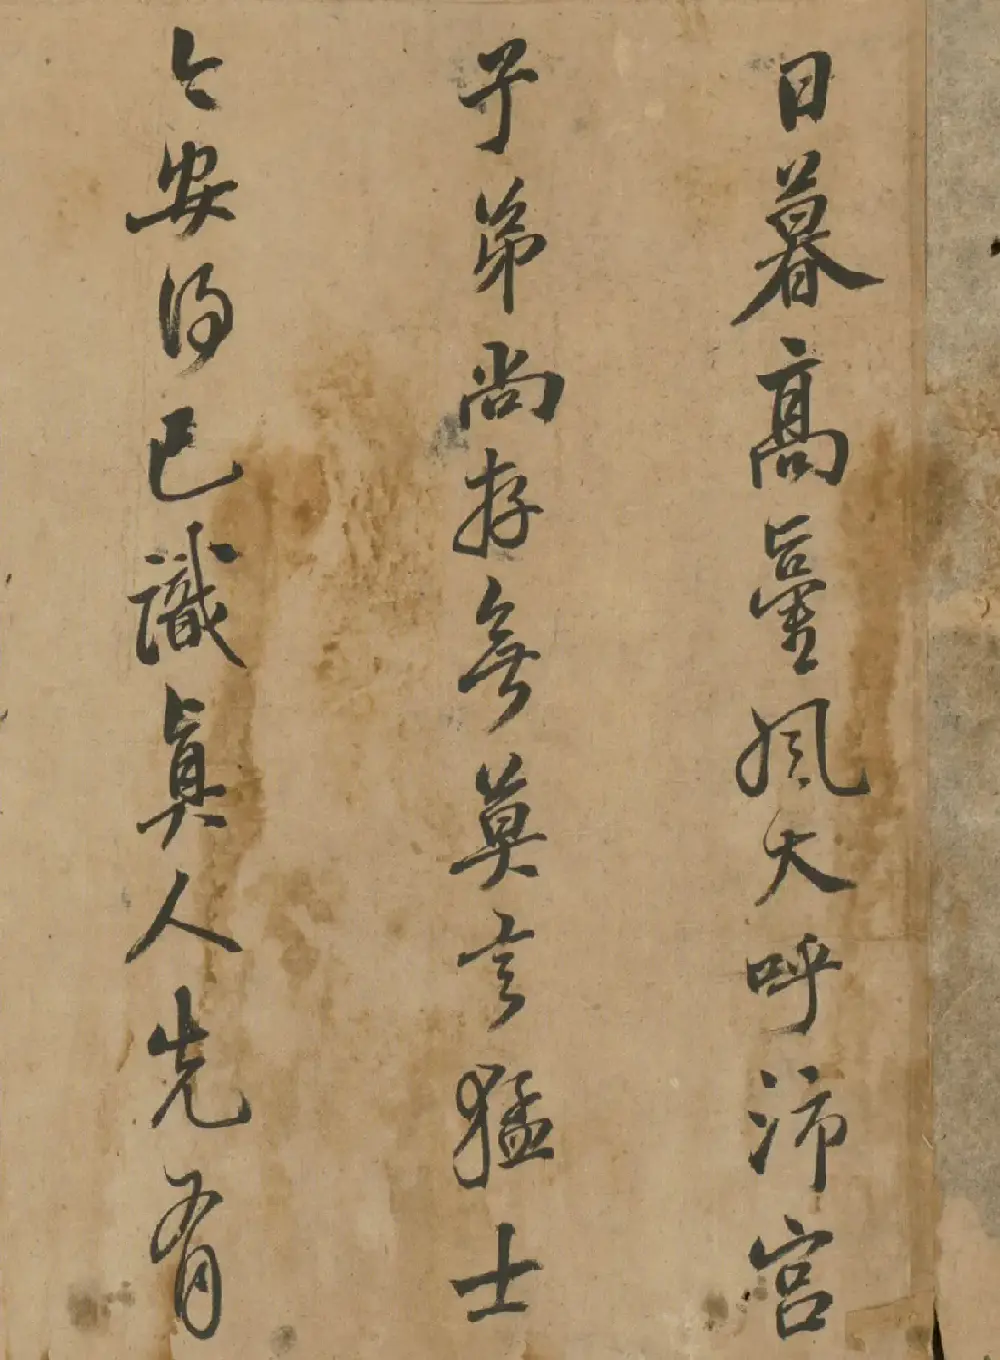 日暮高臺風大呼沛宮
子弟尚存無莫言猛士
今安得已識眞人先有